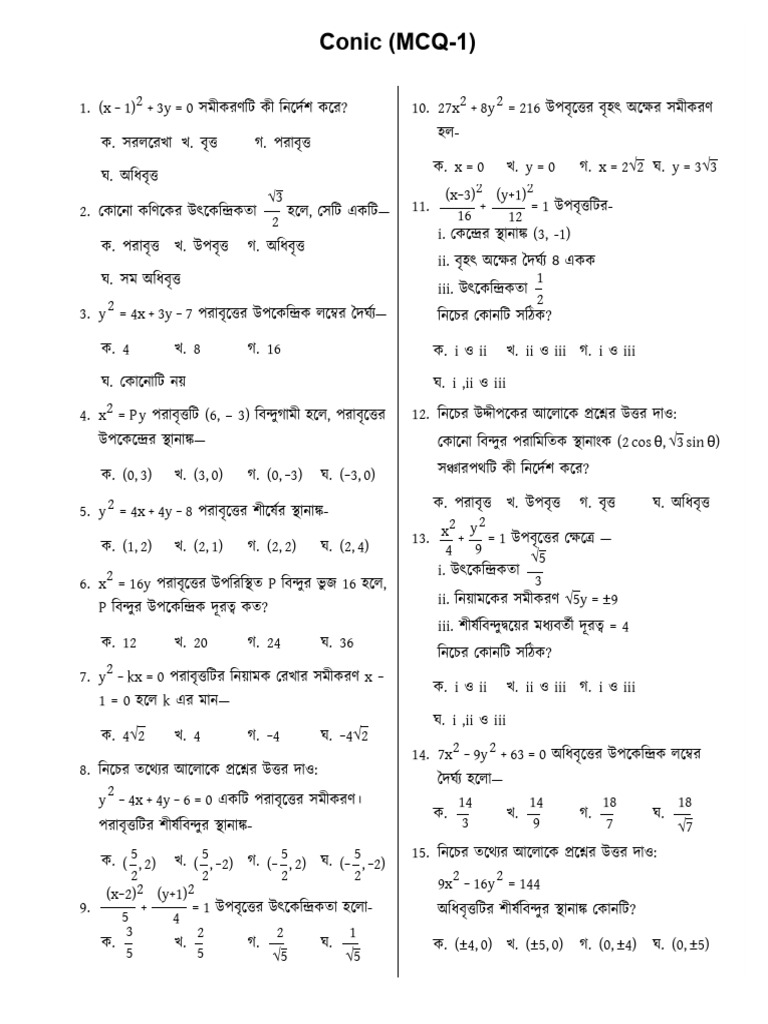 Conic (MCQ-1)
1. (x – 1)² + 3y = 0 সমীকরণটি কী নির্দেশ করে?
ক. সরলরেখা খ. বৃত্ত গ. পরাবৃত্ত
ঘ. অধিবৃত্ত
2. কোনো কণিকের উৎকেন্দ্রিকতা √3/2 হলে, সেটি একটি—
ক. পরাবৃত্ত খ. উপবৃত্ত গ. অধিবৃত্ত
ঘ. সম অধিবৃত্ত
3. y² = 4x + 3y – 7 পরাবৃত্তের উপকেন্দ্রিক লম্বের দৈর্ঘ্য—
ক. 4 খ. 8 গ. 16
ঘ. কোনোটি নয়
4. x² = Py পরাবৃত্তটি (6, – 3) বিন্দুগামী হলে, পরাবৃত্তের
উপকেন্দ্রের স্থানাঙ্ক—
ক. (0, 3) খ. (3, 0) গ. (0, –3) ঘ. (–3, 0)
5. y² = 4x + 4y – 8 পরাবৃত্তের শীর্ষের স্থানাঙ্ক-
ক. (1, 2) খ. (2, 1) গ. (2, 2) ঘ. (2, 4)
6. x² = 16y পরাবৃত্তের উপরিস্থিত P বিন্দুর ভুজ 16 হলে,
P বিন্দুর উপকেন্দ্রিক দূরত্ব কত?
ক. 12 খ. 20 গ. 24 ঘ. 36
7. y² – kx = 0 পরাবৃত্তটির নিয়ামক রেখার সমীকরণ x –
1 = 0 হলে k এর মান—
ক. 4√2 খ. 4 গ. –4 ঘ. –4√2
8. নিচের তথ্যের আলোকে প্রশ্নের উত্তর দাও:
y² – 4x + 4y – 6 = 0 একটি পরাবৃত্তের সমীকরণ।
পরাবৃত্তটির শীর্ষবিন্দুর স্থানাঙ্ক-
ক. (5/2, 2) খ. (5/2, –2) গ. (–5/2, 2) ঘ. (–5/2, –2)
9. (x–2)²/5 + (y+1)²/4 = 1 উপবৃত্তের উৎকেন্দ্রিকতা হলো-
ক. 3/5 খ. 2/5 গ. 2/√5 ঘ. 1/√5
10. 27x² + 8y² = 216 উপবৃত্তের বৃহৎ অক্ষের সমীকরণ
হল-
ক. x = 0 খ. y = 0 গ. x = 2√2 ঘ. y = 3√3
11. (x–3)²/16 + (y+1)²/12 = 1 উপবৃত্তটির-
i. কেন্দ্রের স্থানাঙ্ক (3, -1)
ii. বৃহৎ অক্ষের দৈর্ঘ্য 8 একক
iii. উৎকেন্দ্রিকতা 1/2
নিচের কোনটি সঠিক?
ক. i ও ii খ. ii ও iii গ. i ও iii
ঘ. i ,ii ও iii
12. নিচের উদ্দীপকের আলোকে প্রশ্নের উত্তর দাও:
কোনো বিন্দুর পরামিতিক স্থানাংক (2 cos θ, √3 sin θ)
সঞ্চারপথটি কী নির্দেশ করে?
ক. পরাবৃত্ত খ. উপবৃত্ত গ. বৃত্ত ঘ. অধিবৃত্ত
13. x²/4 + y²/9 = 1 উপবৃত্তের ক্ষেত্রে —
i. উৎকেন্দ্রিকতা √5/3
ii. নিয়ামকের সমীকরণ √5y = ±9
iii. শীর্ষবিন্দুদ্বয়ের মধ্যবর্তী দূরত্ব = 4
নিচের কোনটি সঠিক?
ক. i ও ii খ. ii ও iii গ. i ও iii
ঘ. i ,ii ও iii
14. 7x² – 9y² + 63 = 0 অধিবৃত্তের উপকেন্দ্রিক লম্বের
দৈর্ঘ্য হলো—
ক. 14/3 খ. 14/9 গ. 18/7 ঘ. 18/√7
15. নিচের তথ্যের আলোকে প্রশ্নের উত্তর দাও:
9x² – 16y² = 144
অধিবৃত্তটির শীর্ষবিন্দুর স্থানাঙ্ক কোনটি?
ক. (±4, 0) খ. (±5, 0) গ. (0, ±4) ঘ. (0, ±5)